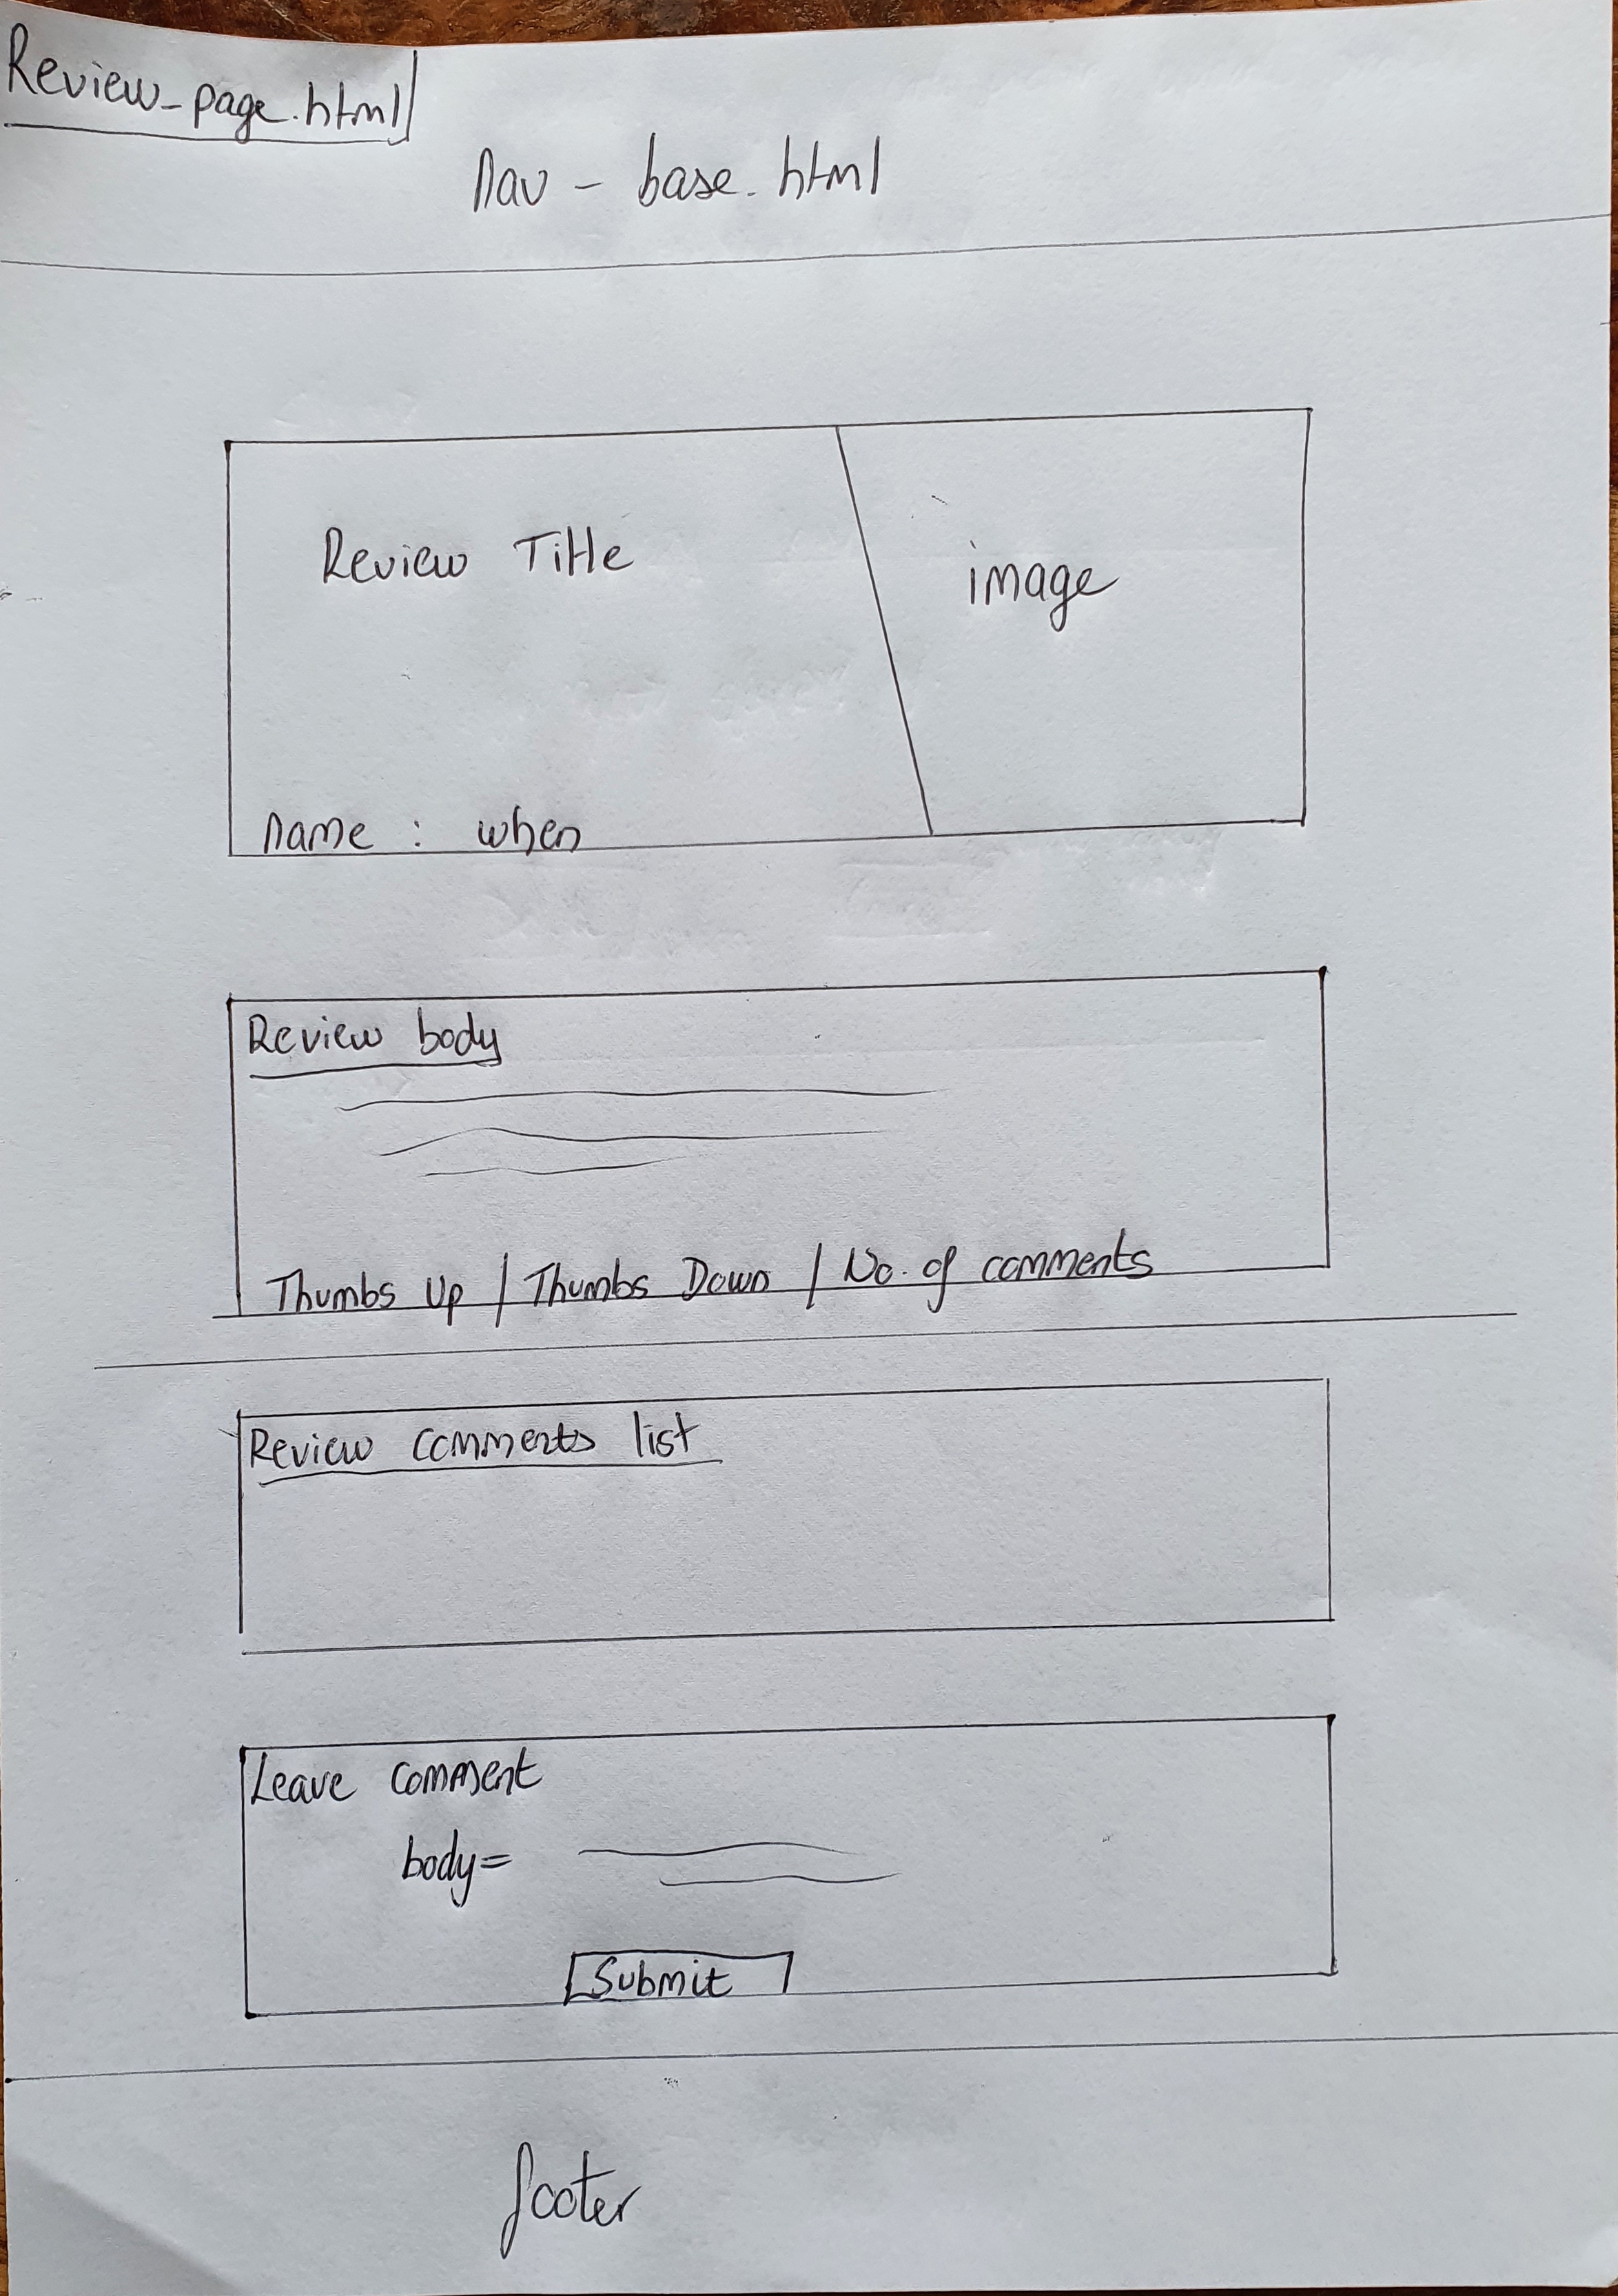 Review_page.html
nav - base.html
Review Title
image
name : when
Review body
Thumbs Up / Thumbs Down / No. of comments
Review comments list
Leave comment
body=
Submit
footer